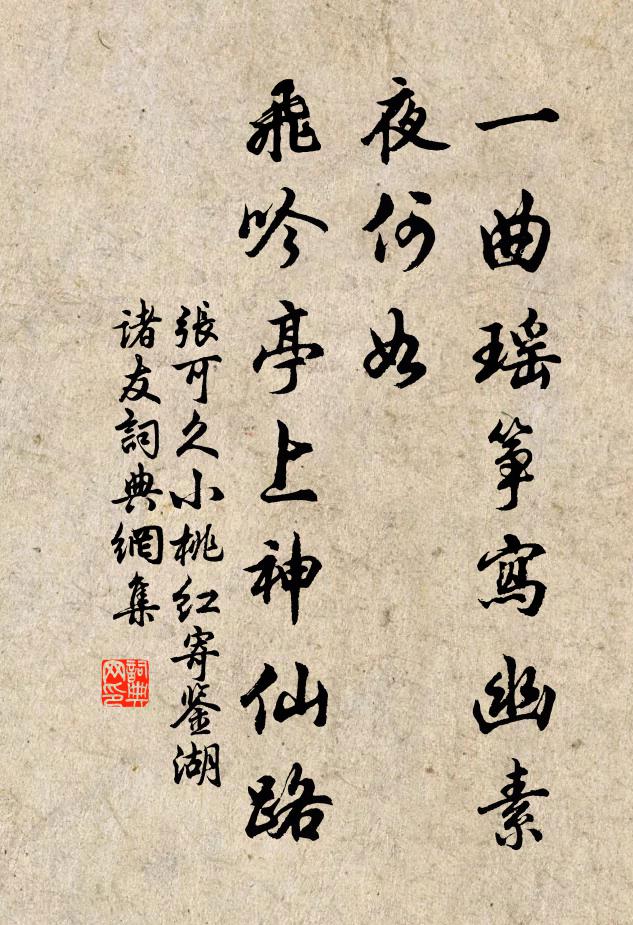 一曲瑶筝寫幽素
夜何如
飛吟亭上神仙路
張可久小桃红寄鉴湖
诸友詞典網集
詞典网印